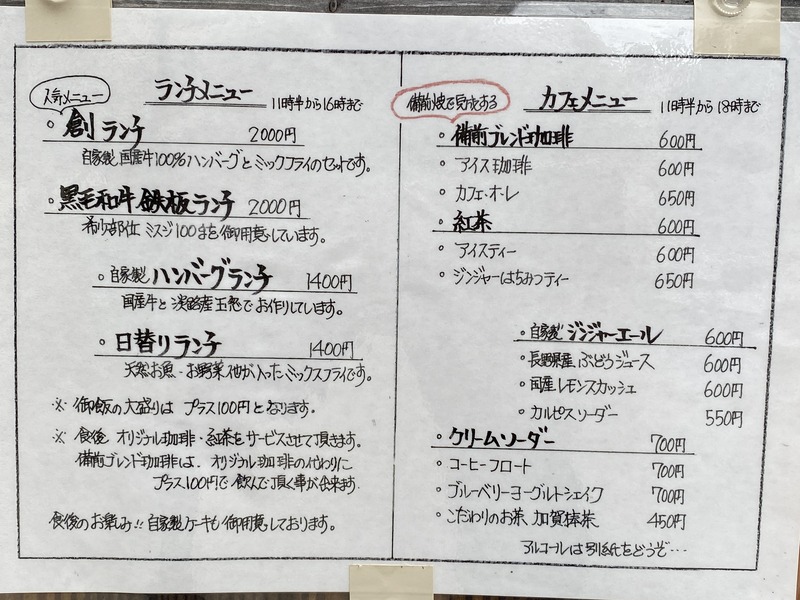 人気メニュー
ランチメニュー 11時半から16時まで
・創ランチ 2000円
自家製国産牛100%ハンバーグとミックフライのセットです。
・黒毛和牛鉄板ランチ 2000円
希少部位 ミスジ100gを御用意しています。
・自家製ハンバーグランチ 1400円
国産牛と淡路産玉葱でお作りしています。
・日替りランチ 1400円
天然お魚・お野菜他が入ったミックスフライです。
※ 御飯の大盛りは プラス100円となります。
※ 食後 オリジナル珈琲・紅茶をサービスさせて頂きます。
備前ブレンド珈琲は、オリジナル珈琲の代わりに
プラス100円で飲んで頂く事が出来ます。
食後のお楽しみ!! 自家製ケーキも御用意しております。
備前焼で
カフェメニュー 11時半から18時まで
・備前ブレンド珈琲 600円
・アイス珈琲 600円
・カフェ・オ・レ 650円
・紅茶 600円
・アイスティー 600円
・ジンジャーはちみつティー 650円
・自家製ジンジャーエール 600円
・長野県産ぶどうジュース 600円
・国産レモンスカッシュ 600円
・カルピスソーダー 550円
・クリームソーダー 700円
・コーヒーフロート 700円
・ブルーベリーヨーグルトシェイク 700円
・こだわりのお茶 加賀棒茶 450円
アルコールは別紙をどうぞ…